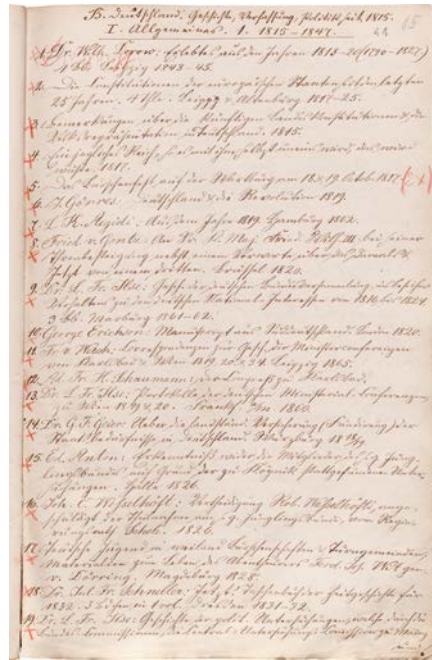 B. Deutschland. Geschichte, Verfassung, Politik, seit 1815.
I. Allgemeines. 1. 1815-1847.
15
1. Dr. Wilh. Dorow: Erlebtes aus den Jahren 1813-20 (1790-1827)
4 Leipzig 1843-45.
2. Die Constitutionen der europäischen Staaten seit den letzten
25 Jahren. 4 Thle. Leipzig u. Altenburg 1817-25.
3. Bemerkungen über die künftigen
in Deutschland. 1815.
4. Ein jegliches Reich, so es mit ihm selbst uneins wird, das wird
wüste. 1817.
5. Das Burschenfest auf der Wartburg am 18 u. 19 Octob. 1817.
6. J. Görres: Deutschland u. die Revolution 1819.
7. L. K. Aegidi: Aus dem Jahre 1819. Hamburg
8. Fried. v. Gentz: An Sr. K. Maj. Fried. Wilh. III bei seiner
Thronbesteigung nebst einem Vorworte über das damals u.
Jetzt von einem dritten. Brüssel 1820.
9. Dr. L. Fr. Ilse: Gesch. der deutschen Bundesversammlung, insbesondere
Verhalten zu den deutschen National-Interessen von 1816 bis 1824
3 Bd. Marburg 1861-62.
10. George Erichson: Manuscript aus Süddeutschland. London 1820.
11. Fr. v. Weech: Correspondenzen zur Gesch. der Ministerconferenzen
von Karlsbad u. Wien 1819, 20 u. 34. Leipzig 1865.
12. Ad. Fr. H. Schaumann: der Congress zu Karlsbad.
13. Dr. L. Fr. Ilse: Protokolle der deutschen Ministerial-Conferenzen,
zu Wien 1819 u. 20. Frankf. 1860.
14. Dr. G. F. Ueber die landständ. Verfassung
in Deutschland Würzburg
15. Ed. Erkenntniß wider die Mitglieder des
Halle 1826.
16. Joh. C. Wesselhöft: Vertheidigung Rob. Wesselhöfts, ange-
schuldigt der Theilnahme am s. g. Jünglingsbunde, vom
1826.
17. Teutsche Jugend in weiland Burschenschaften u. Turngemeinden,
Materialien zum Leben des Abentheurers Ferd. Joh. Wit gen.
v. Dörring, Magdeburg 1828.
18. Dr. Jul. Fr. Schneller: Jetzt! Taschenbuch der Zeitgeschichte für
1832. Dresden 1831-32.
19. Dr. L. Fr. Ilse: Geschichte der polit. Untersuchungen, welche durch die
Bundescommissionen, die Central-Untersuchungs-Commission zu Mainz